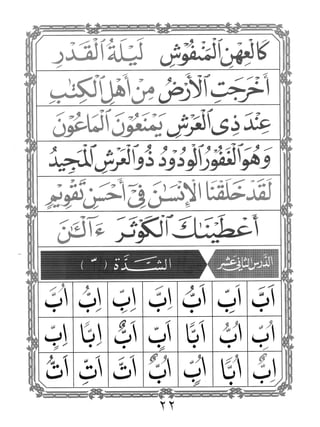 كَالْعِهْنِ الْمَنْفُوْشِ لَيْلَةُ الْقَدْرِ
أَخْرَجَتِ الْأَرْضُ مِنْ أَهْلِ الْكِتٰبِ
عِنْدَ ذِى الْعَرْشِ يَمْنَعُوْنَ الْمَاعُوْنَ
وَهُوَ الْغَفُوْرُ الْوَدُوْدُ ذُو الْعَرْشِ الْمَجِيْدُ
لَقَدْ خَلَقْنَا الْإِنْسٰنَ فِىْٓ أَحْسَنِ تَقْوِيْمٍ
أَعْطَيْنٰكَ الْكَوْثَرَ ءَآلْـٰٔنَ
الدرس الثانى عشر الشدة ( ّ )
اَبَّ اَبِّ اَبُّ اِبَّ اِبِّ اِبُّ اُبَّ
اُبِّ اُبُّ اَبًّا اَبٍّ اَبٌّ اِبًّا اِبٍّ
اِبٌّ اُبًّا اُبٍّ اُبٌّ اَتَّ اَتِّ اَتُّ
٢٢